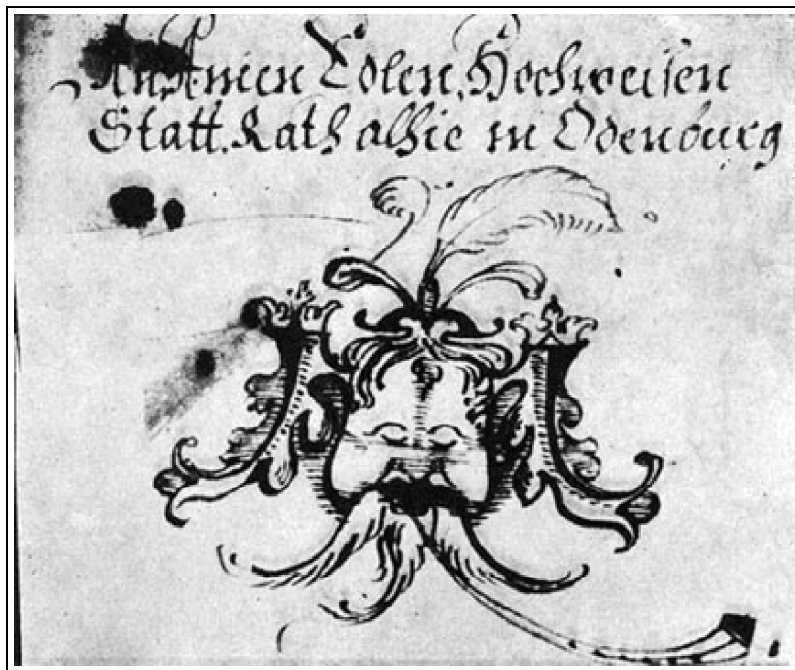 An Ainen Edlen, Hochweisen
Statt. Rath alhie in Odenburg